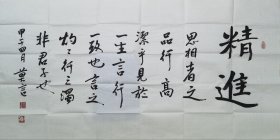 精進
思想者之
品行高
潔乎見於
一生言行
一致也言之
灼灼行之濁
非君子也
甲午四月莫言